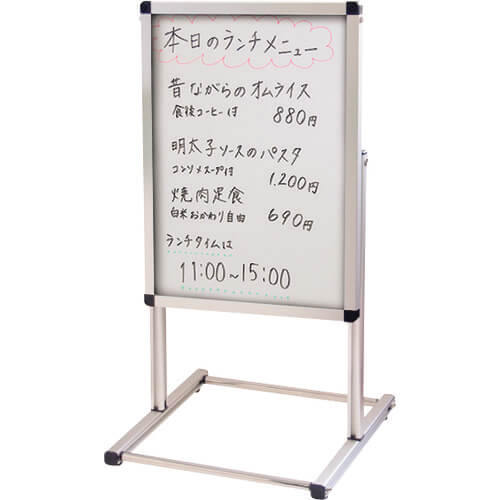 本日のランチメニュー
昔ながらのオムライス
食後コーヒー付 880円
明太子ソースのパスタ
コンソメスープ付 1.200円
焼肉定食
白米おかわり自由 690円
ランチタイムは
11:00~15:00